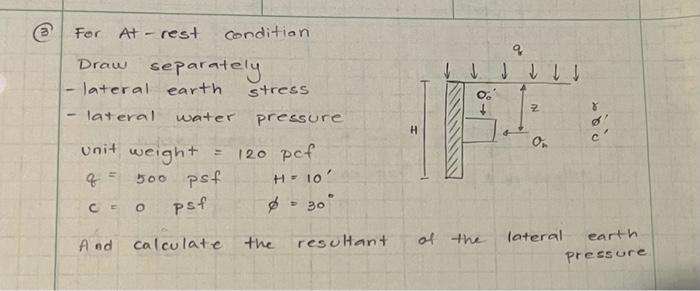 ③ For At-rest condition
Draw separately
- lateral earth stress
- lateral water pressure
unit weight = 120 pcf
q = 500 psf H = 10'
c = 0 psf ϕ = 30°
And calculate the resultant of the lateral earth pressure
q
σo'
z
γ
ϕ'
c'
H
σh